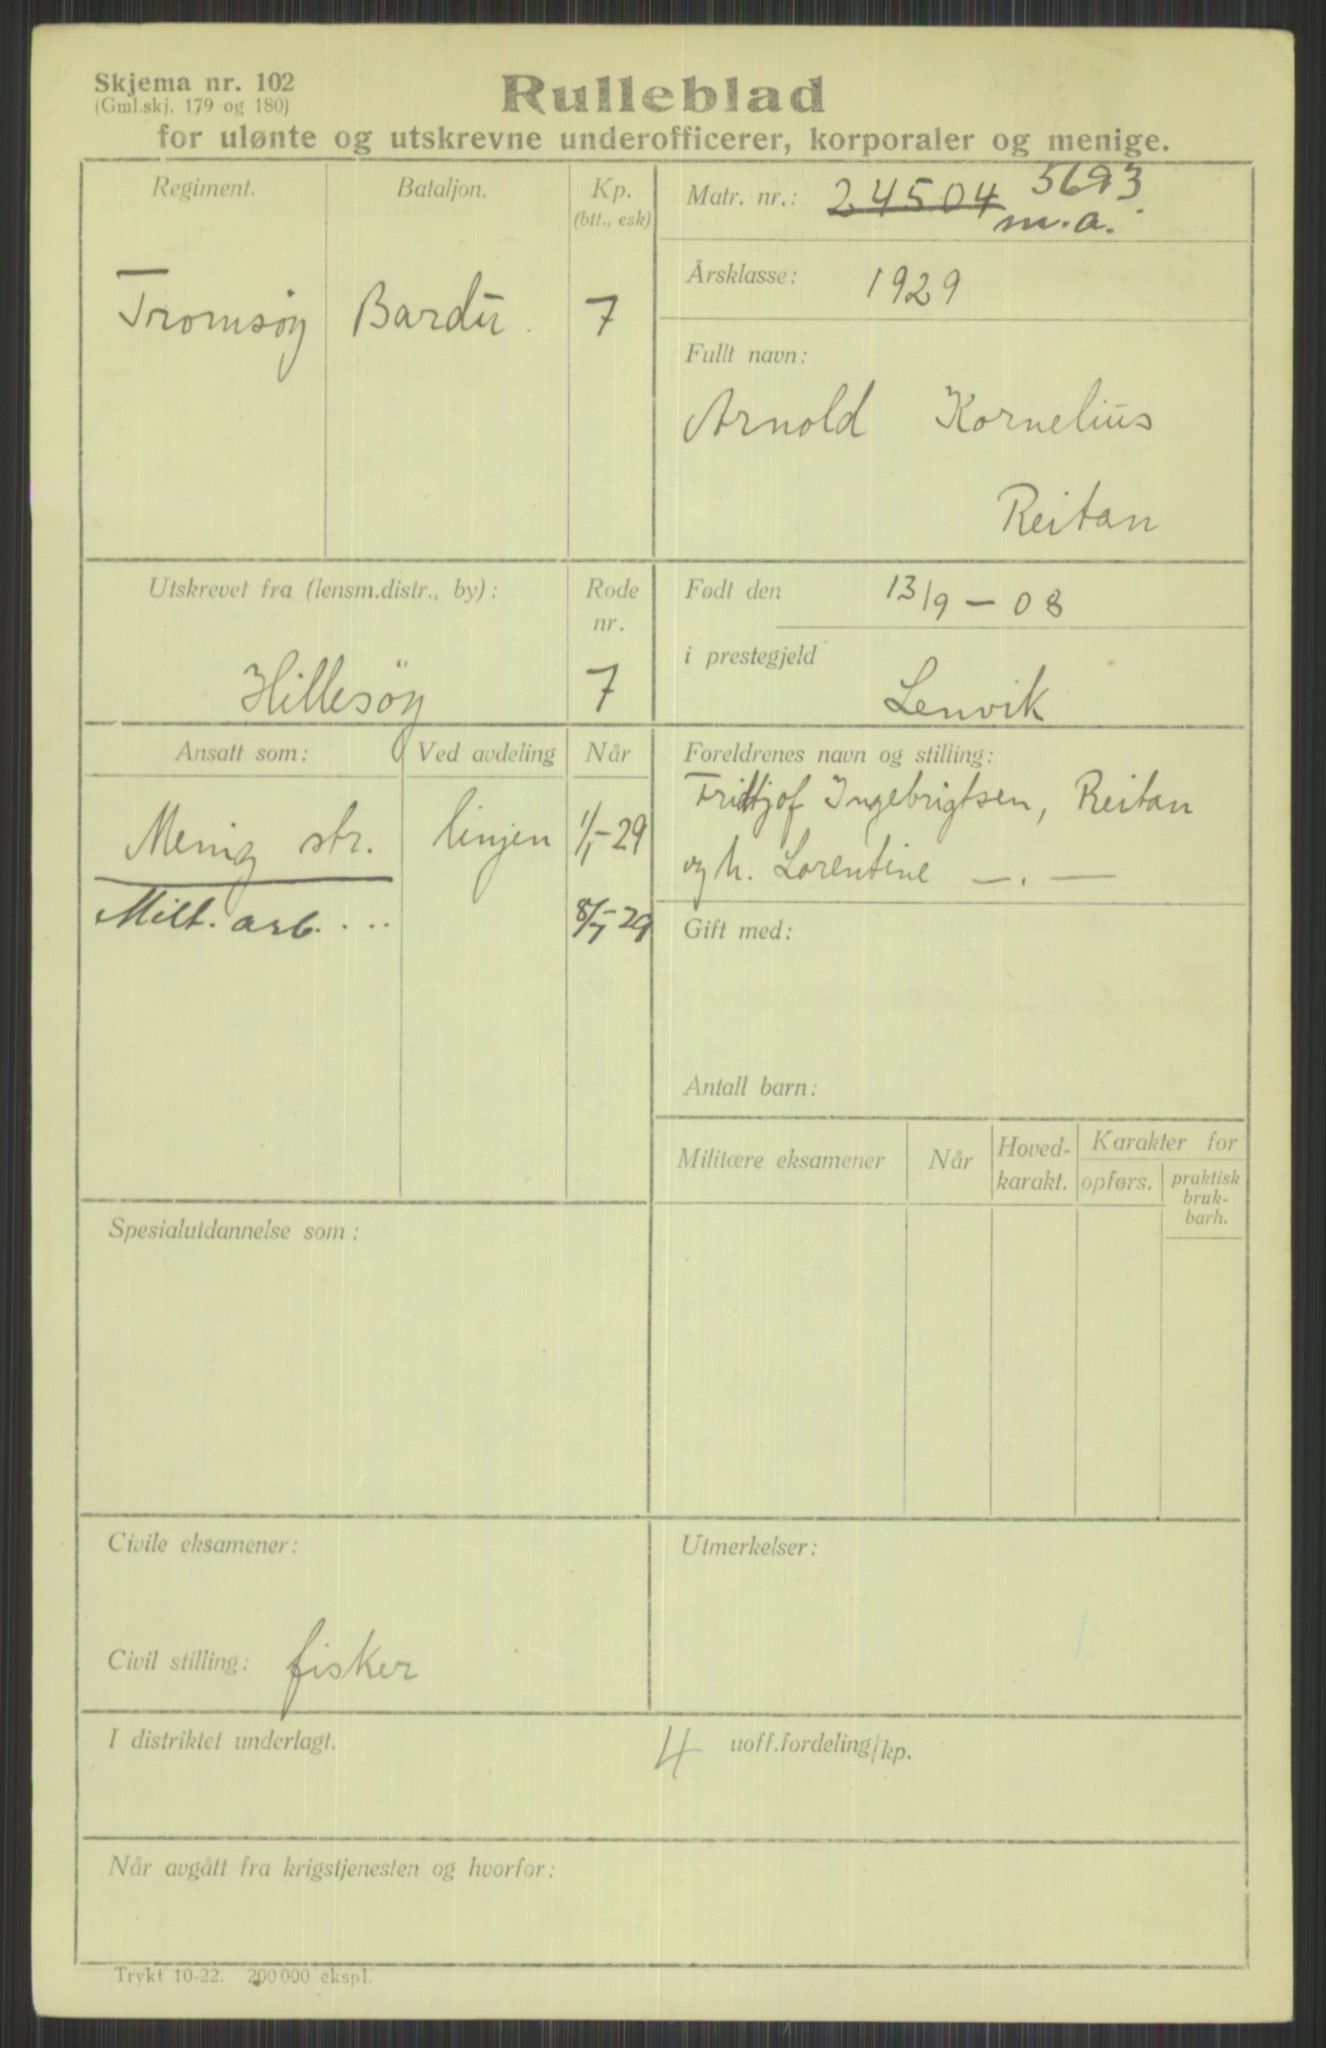 Skjema nr. 102
(Gml.skj. 179 og 180)
Rulleblad
for ulønte og utskrevne underofficerer, korporaler og menige.
Regiment.
Tromsöy
Bataljon.
Bardu.
Kp.
(btt., esk)
7
Matr. nr.: 24504 5693
m.a.
Årsklasse: 1929
Fullt navn:
Arnold Kornelius
Reitan
Utskrevet fra (lensm.distr., by):
Hillesöy
Rode
nr.
7
Født den 13/9 - 08
i prestegjeld
Lenvik
Ansatt som: Ved avdeling Når
Menig str. linjen 1/1-29
Milt. arb. . . . 8/7-29
Foreldrenes navn og stilling:
Fridtjof Ingebrigtsen, Reitan
og h. Lorentine — . —
Gift med:
Antall barn:
Militære eksamener
Når
Hoved-
karakt.
Karakter for
opførs.
praktisk
bruk-
barh.
Spesialutdannelse som:
Civile eksamener:
Civil stilling: fisker
Utmerkelser:
I distriktet underlagt. 4 uoff.fordeling/kp.
Når avgått fra krigstjenesten og hvorfor:
Trykt 10-22. 200 000 ekspl.